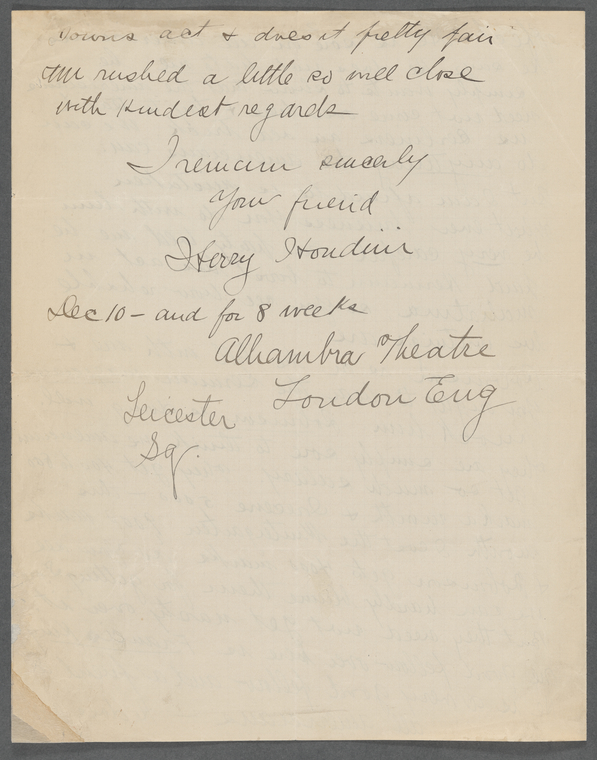 Downs act & does it pretty fair
Am rushed a little so will close
with Kindest regards
I remain sincerly
Your friend
Harry Houdini
Dec 10 - and for 8 weeks
Alhambra Theatre
London Eng
Leicester
Sq.